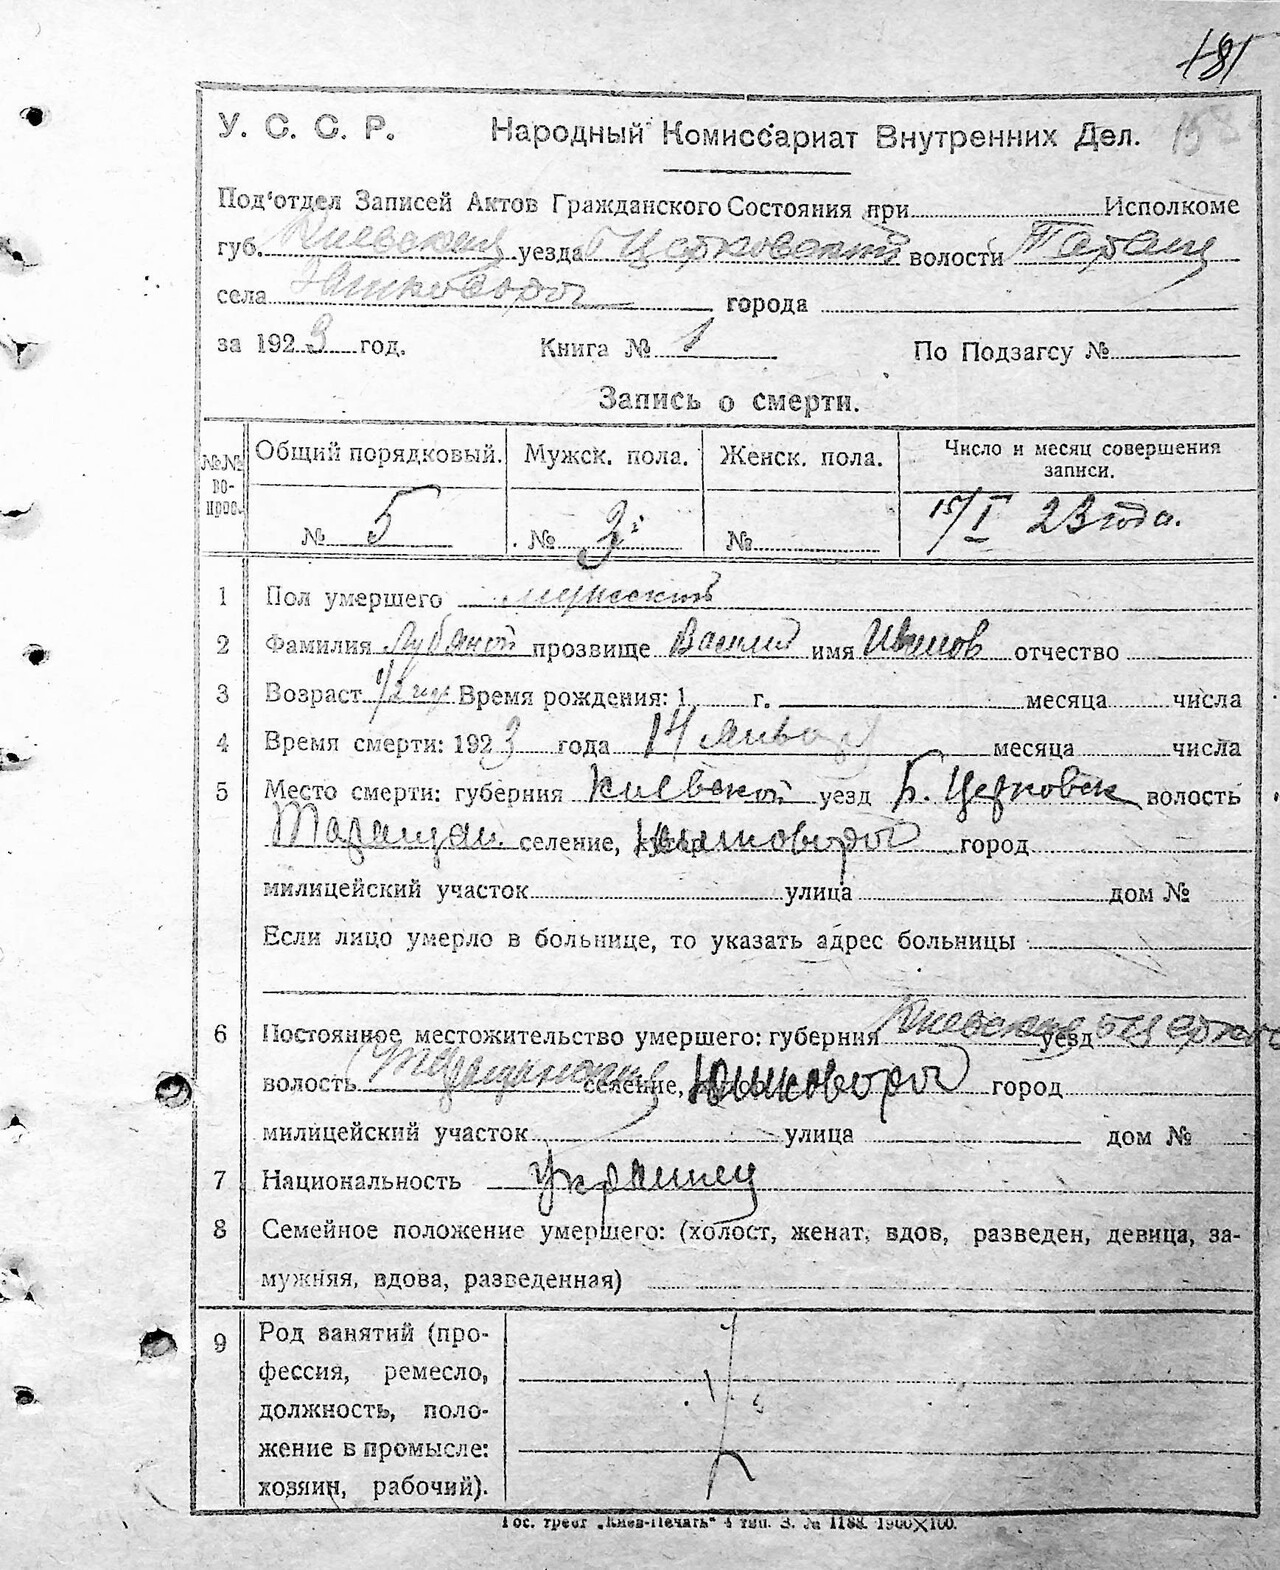 181
158
У. С. С. Р. Народный Комиссариат Внутренних Дел.
Под'отдел Записей Актов Гражданского Состояния при Исполкоме
губ. Киевская уезда Б Церковский волости Таращ
села Юшков Рог города
за 1923 год. Книга № 1 По Подзагсу №
Запись о смерти.
№№ во- прос. Общий порядковый. Мужск. пола. Женск. пола. Число и месяц совершения записи.
№ 5 № 3 № 15/I 23 года.
1 Пол умершего мужской
2 Фамилия прозвище Василий имя Иванов отчество
3 Возраст 1/2 Время рождения: 1 г. месяца числа
4 Время смерти: 1923 года 14 января месяца числа
5 Место смерти: губерния Киевской уезд Б. Церковск волость
Таращан. селение, Юшков Рог город
милицейский участок улица дом №
Если лицо умерло в больнице, то указать адрес больницы
6 Постоянное местожительство умершего: губерния Киевская уезд Б Церков
волость Таращанская селение, Юшков Рог город
милицейский участок улица дом №
7 Национальность украинец
8 Семейное положение умершего: (холост, женат, вдов, разведен, девица, за-
мужняя, вдова, разведенная)
9 Род занятий (про-
фессия, ремесло,
должность, поло-
жение в промысле:
хозяин, рабочий).
Гос. трест „Киев-Печать" 4 тип. З. № 1188. 1900×100.